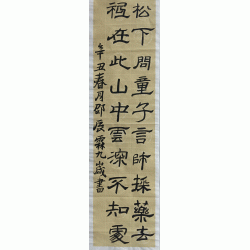 松下問童子言師採藥去
祗在此山中雲深不知處
辛丑春月邵辰霖九歲書